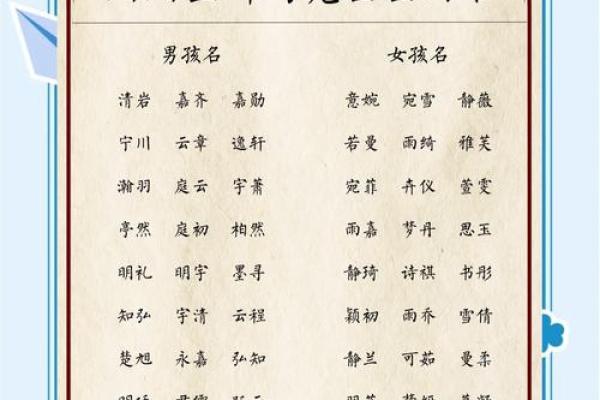 男孩名 女孩名
清岩 嘉齐 嘉勋 意婉 宛雪 静薇
宁川 云章 逸轩 若曼 雨绮 雅芙
瀚羽 庭云 宇萧 宛菲 卉仪 萱雯
亭然 庭初 柏然 雨嘉 梦丹 思玉
明礼 明宇 墨寻 静琦 诗祺 书彤
知弘 宇清 云程 颖初 雨乔 雪倩
楚旭 永嘉 弘知 静兰 可茹 曼柔